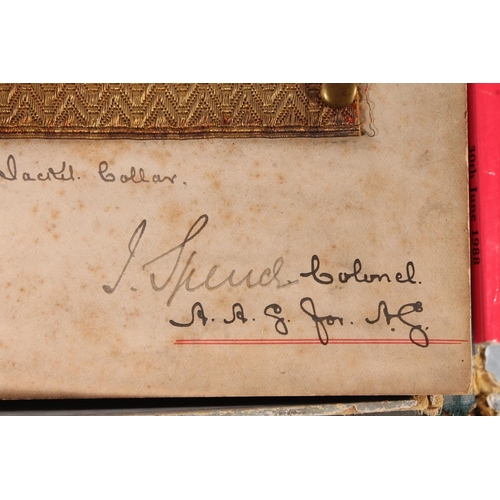 Jackt. Collar.
J. Spence Colonel.
A. A. G. for. A.G.
30th June 1988